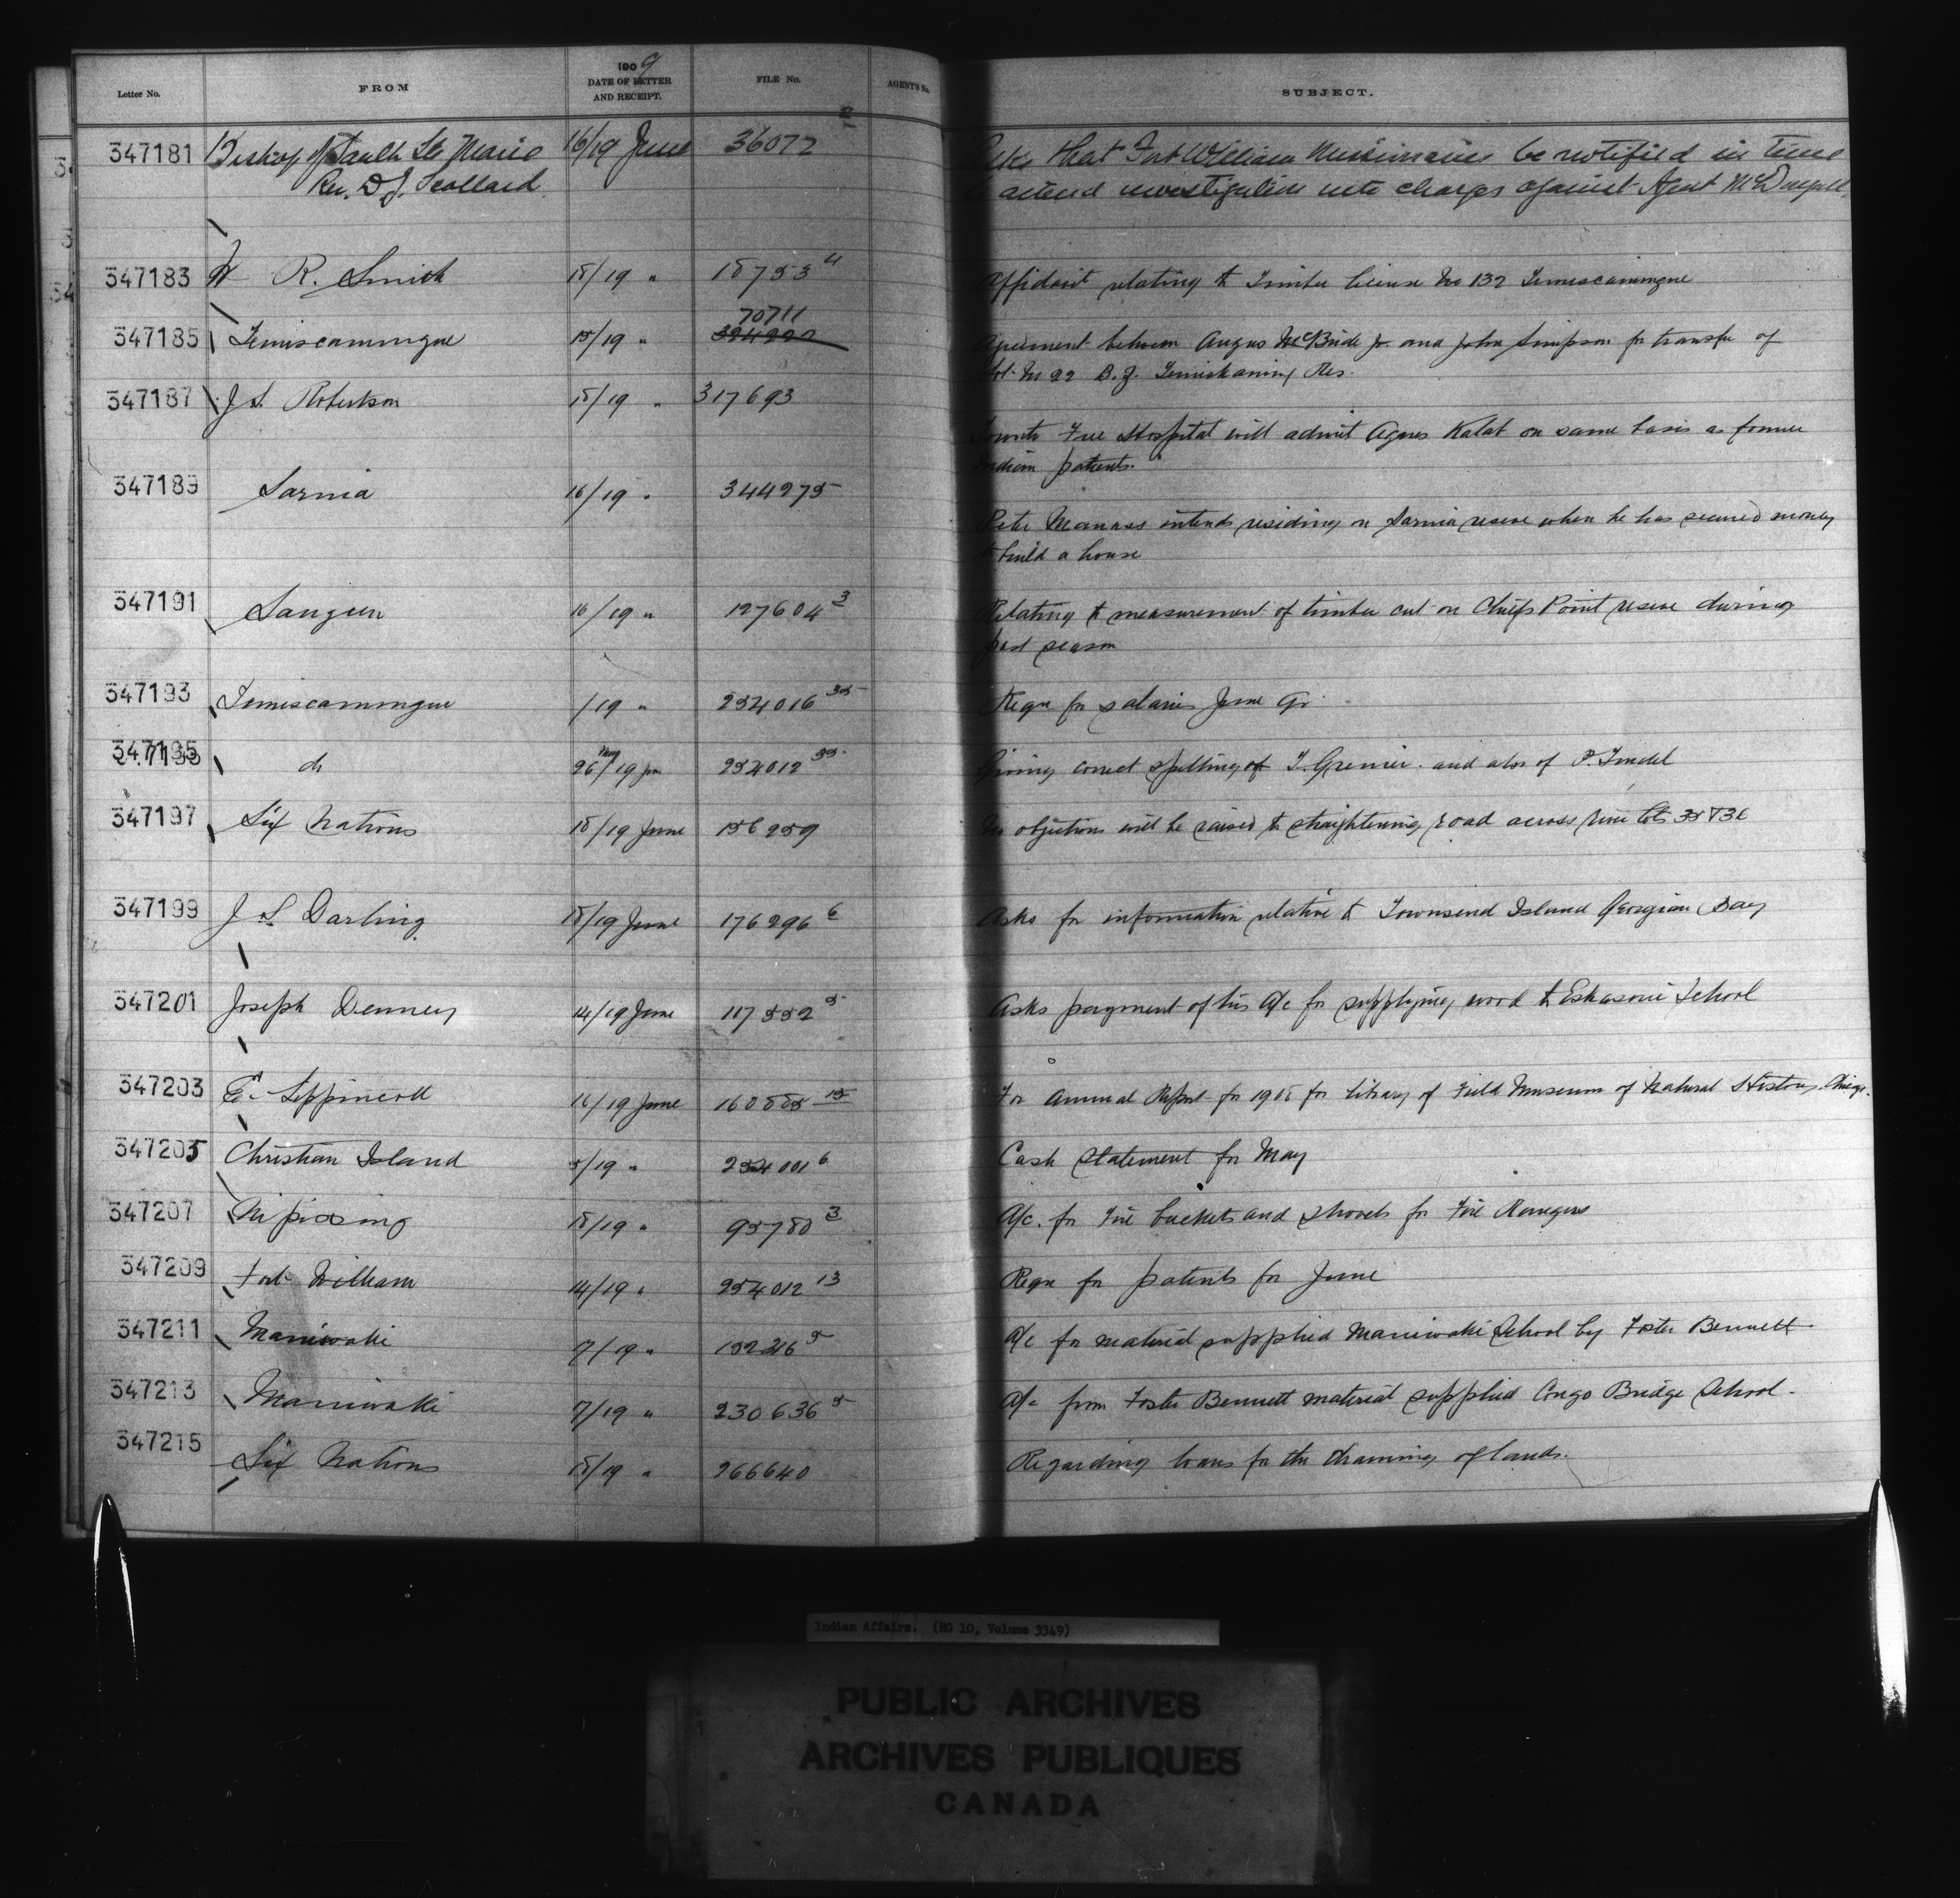 1909
Letter No. FROM DATE OF LETTER AND RECEIPT. FILE No. AGENT'S No. SUBJECT.
347181 Bishop of Sault Ste Marie 16/19 June 36072 2 Asks that Fort William Missionaries be notified in time
Rev. D. J. Scollard to attend investigation into charges against Agent McDougall
347183 W R. Smith 18/19 " 18753 4 Affidavit relating to Timber license No 132 Temiscamingue
70711
347185 Temiscamingue 15/19 " 324222 Agreement between Angus McBride Jr. and John Simpson for transfer of
Lot No 22 B.J. Temiskaming Res.
347187 J. S. Robertson 18/19 " 317693
Toronto Free Hospital will admit Agnes Kalat on same basis as former
Indian patients.
347189 Sarnia 16/19 " 344275
Peter Manass intends residing on Sarnia reserve when he has secured money
to build a house
347191 Saugeen 16/19 " 127604 3 Relating to measurement of timber cut on Chiefs Point reserve during
past season
347193 Temiscamingue /19 " 254016 35 Reqn for salaries June Qr.
347195 do 26 May/19 Jun 254012 35 Giving correct spelling of T. Grenier and also of P.
347197 Six Nations 18/19 June 156259 No objections will be raised to straightening road across River lots 35 & 36
347199 J S Darling 18/19 June 176296 6 Asks for information relative to Townsend Island Georgian Bay
347201 Joseph Denney 14/19 June 117552 5 Asks payment of his A/c for supplying wood to Eskasoni School
347203 E. Lippincott 16/19 June 160885 15 For Annual Report for 1908 for Library of Field Museum of Natural History Chicago.
347205 Christian Island 5/19 " 254001 6 Cash Statement for May
347207 Nipissing 18/19 " 95780 3 A/c. for Fire buckets and shovels for Fire Rangers
347209 Fort William 14/19 " 254012 13 Reqn for patients for June
347211 Maniwaki 7/19 " 152316 5 A/c for material supplied Maniwaki School by Foster Bennett
347213 Maniwaki 7/19 " 230636 5 A/c from Foster Bennett material supplied Congo Bridge School.
347215 Six Nations 18/19 " 266640 Regarding loans for the draining of lands.
Indian Affairs. (RG 10, Volume 3349)
PUBLIC ARCHIVES
ARCHIVES PUBLIQUES
CANADA